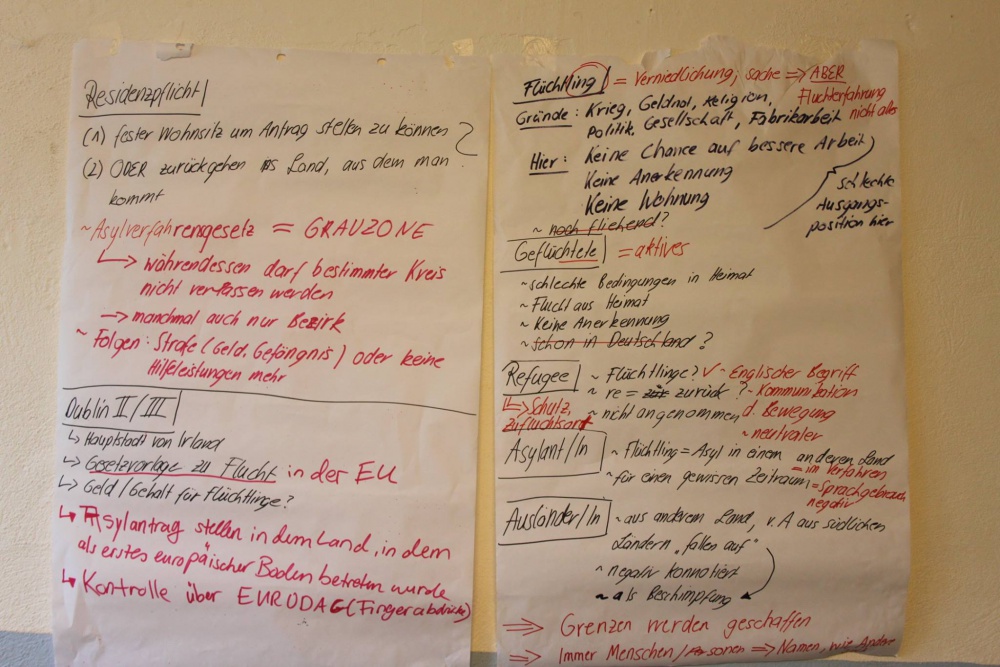 Residenzpflicht
(1) fester Wohnsitz um Antrag stellen zu können ?
(2) ODER zurückgehen ins Land, aus dem man
kommt
~ Asylverfahrengesetz = GRAUZONE
↳ währendessen darf bestimmter Kreis
nicht verlassen werden
→ manchmal auch nur Bezirk
~ Folgen: Strafe (Geld, Gefängnis) oder keine
Hilfeleistungen mehr
Dublin II/III
↳ Hauptstadt von Irland
↳ Gesetzvorlage zu Flucht in der EU
↳ Geld/Gehalt für Flüchtlinge?
↳ Asylantrag stellen in dem Land, in dem
als erstes europäischer Boden betreten wurde
↳ Kontrolle über EURODAC (Fingerabdrücke)
Flüchtling = Verniedlichung; sache => ABER
Fluchterfahrung
nicht alles
Gründe: Krieg, Geldnot, Religion,
Politik, Gesellschaft, Fabrikarbeit
Hier: Keine Chance auf bessere Arbeit
Keine Anerkennung
Keine Wohnung
schlechte
Ausgangs-
position hier
~ noch fliehend?
Geflüchtete = aktives
~ schlechte Bedingungen in Heimat
~ Flucht aus Heimat
~ Keine Anerkennung
~ schon in Deutschland?
Refugee ~ Flüchtlinge? ✓ ~ Englischer Begriff
~ re = zurück? ~ Kommunikation
↳ Schutz, ~ nicht angenommen d. Bewegung
Zufluchtsort ~ neutraler
Asylant/In ~ Flüchtling = Asyl in einem anderen Land
= im Verfahren
~ für einen gewissen Zeitraum = Sprachgebrauch
negativ
Ausländer/In ~ aus anderem Land, v. A aus südlichen
Ländern „fallen auf"
~ negativ konnotiert
~ als Beschimpfung
=> Grenzen werden geschaffen
=> Immer Menschen/Personen => Namen, wie Andere